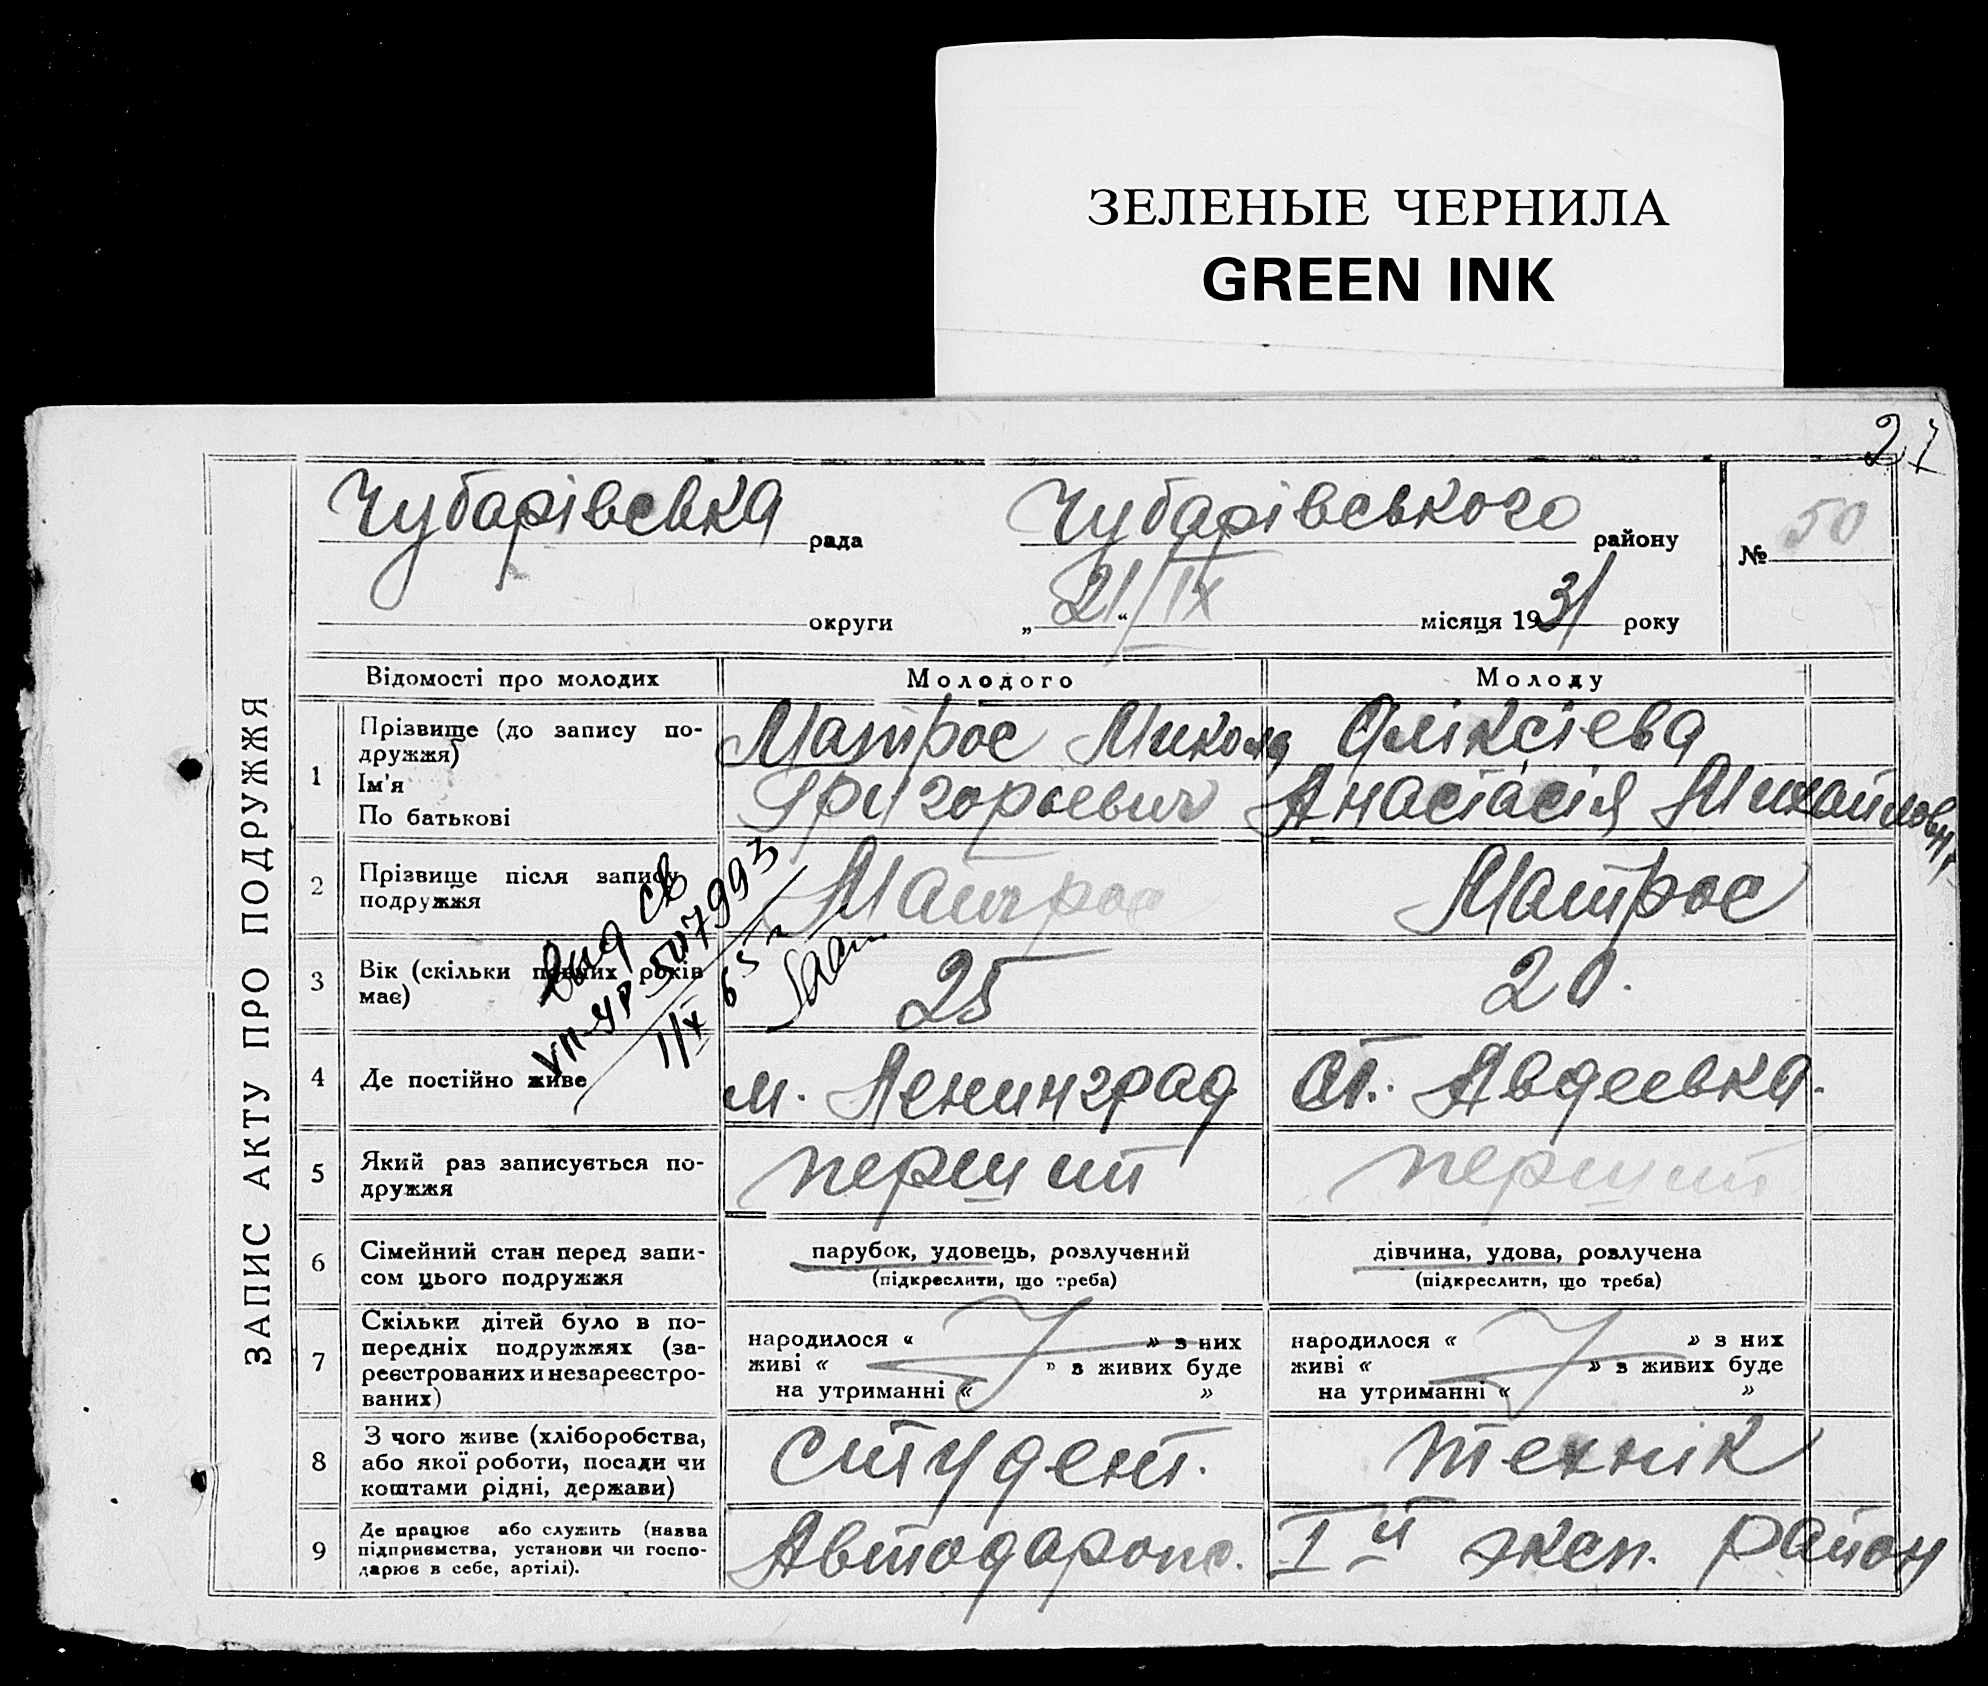 ЗЕЛЕНЫЕ ЧЕРНИЛА
GREEN INK
27
ЗАПИС АКТУ ПРО ПОДРУЖЖЯ
Чубарівська рада Чубарівського району № 50
округи „21“ IX місяця 1931 року
Відомості про молодих Молодого Молоду
1 Прізвище (до запису по-
дружжя)
Ім'я
По батькові
Матрос Микола
Григоріевич
Аліксієва
Анастасія Михайловна
2 Прізвище після запису
подружжя
Матрос Матрос
Выд св
УП-ЯР 507993
1/X 65 г
3 Вік (скільки повних років
має)
25 20.
4 Де постійно живе м. Ленинград ст. Авдеевка.
5 Який раз записується по-
дружжя
перший перший
6 Сімейний стан перед запи-
сом цього подружжя
парубок, удовець, розлучений
(підкреслити, що треба)
дівчина, удова, розлучена
(підкреслити, що треба)
7 Скільки дітей було в по-
передніх подружжях (за-
реєстрованих и незареєстро-
ваних)
народилося « » з них
живі « » в живих буде
на утриманні « »
народилося « » з них
живі « » в живих буде
на утриманні « »
8 З чого живе (хліборобства,
або якої роботи, посади чи
коштами рідні, держави)
студент. технік
9 Де працює або служить (назва
підприємства, установи чи госпо-
дарює в себе, артілі).
I й эксп. район